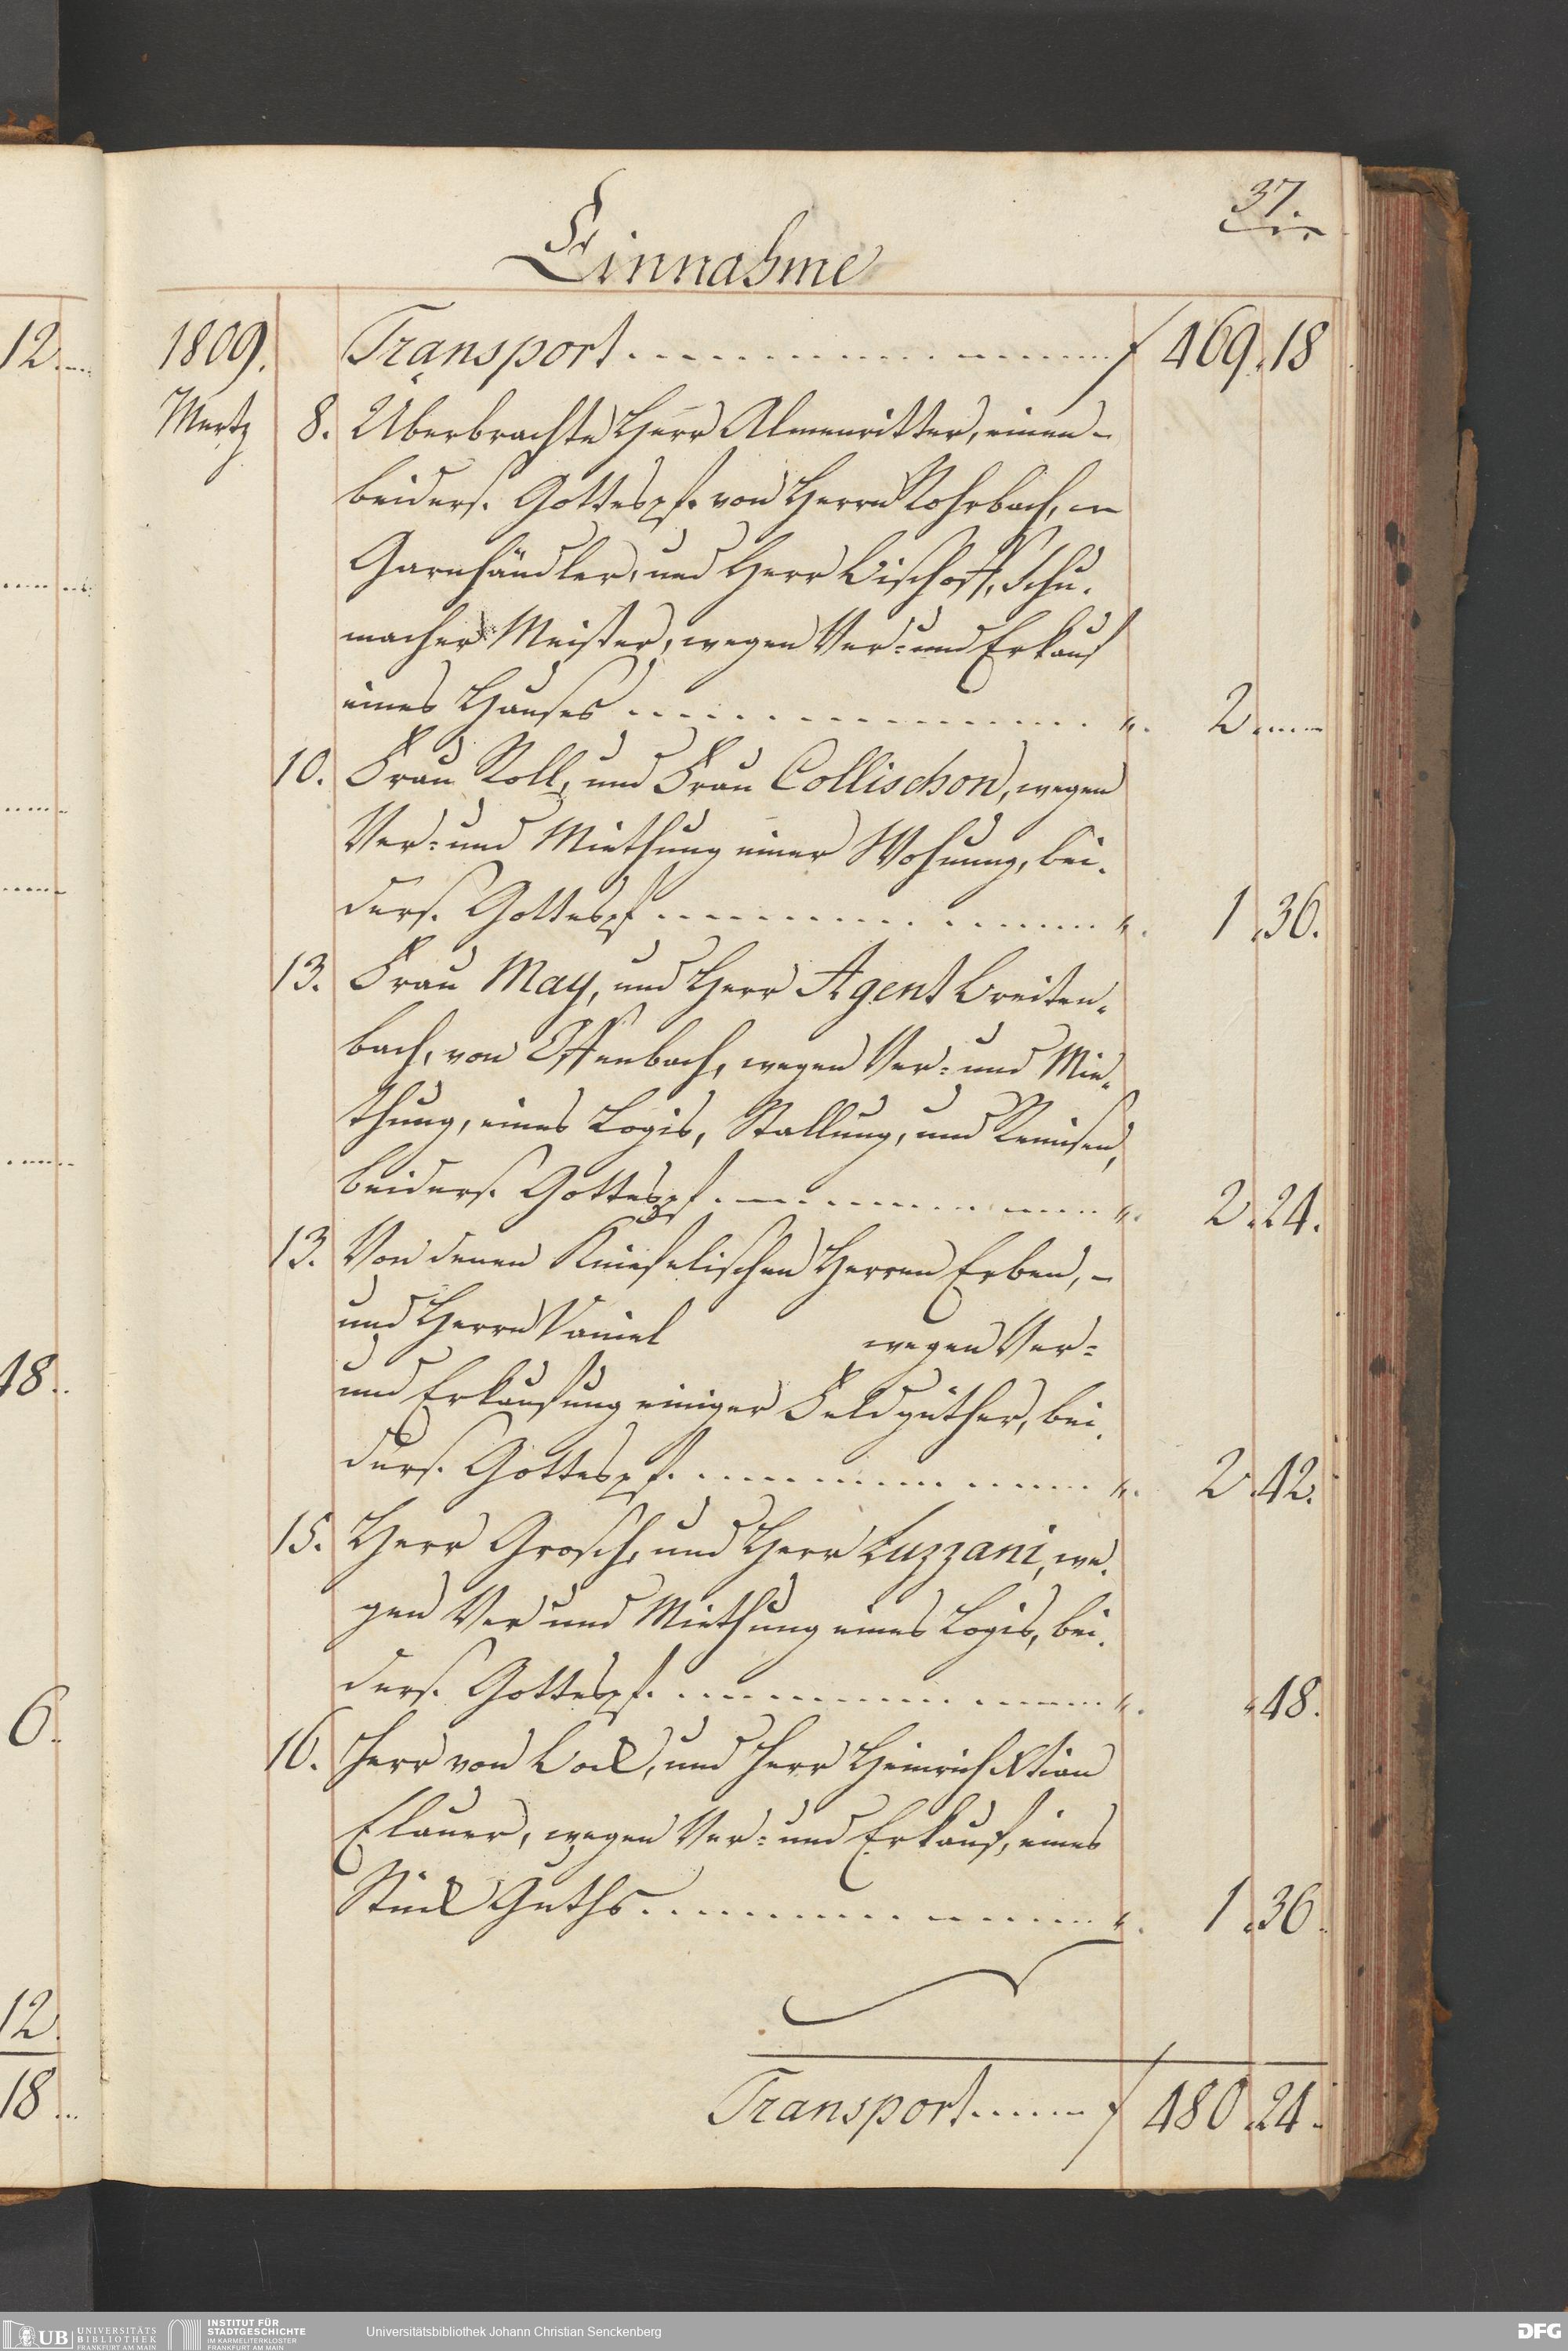 37.
Einnahme
12.
1809. Transport f 469. 18
Mertz 8. Uberbrachte Herr Almenritter, einen
beiders. Gottespf. von Herrn Rohrbach,
Garnhändler, und Herr Bischoff, Schu-
macher Meister, wegen Ver= und Erkauf
eines Hauses ". 2.
10. Frau Koll, und Frau Collischon, wegen
Ver= und Miethung einer Wohnung, bei-
ders. Gottespf ". 1. 36.
13. Frau May, und Herr Agent Breiten-
bach, von Offenbach, wegen Ver= und Mie-
thung, eines Logis, Stallung, und Remisen,
beiders. Gottespf. ". 2. 24.
13. Von denen Knieselischen Herren Erben,
und Herrn Daniel wegen Ver=
und Erkaufung einiger Feldgüther, bei-
ders. Gottespf. ". 2. 42.
15. Herr Grosch, und Herr Luzzani, we-
gen Ver und Miethung eines Logis, bei-
ders. Gottespf. ". " 48.
16. Herr von Bock, und Herr Heinrich
Elauer, wegen Ver= und Erkauf, eines
Stück Guths. ". 1. 36.
Transport f 480. 24.
48.
6.
12
18
UB UNIVERSITÄTS
BIBLIOTHEK
FRANKFURT AM MAIN
INSTITUT FÜR
STADTGESCHICHTE
IM KARMELITERKLOSTER
FRANKFURT AM MAIN
Universitätsbibliothek Johann Christian Senckenberg
DFG